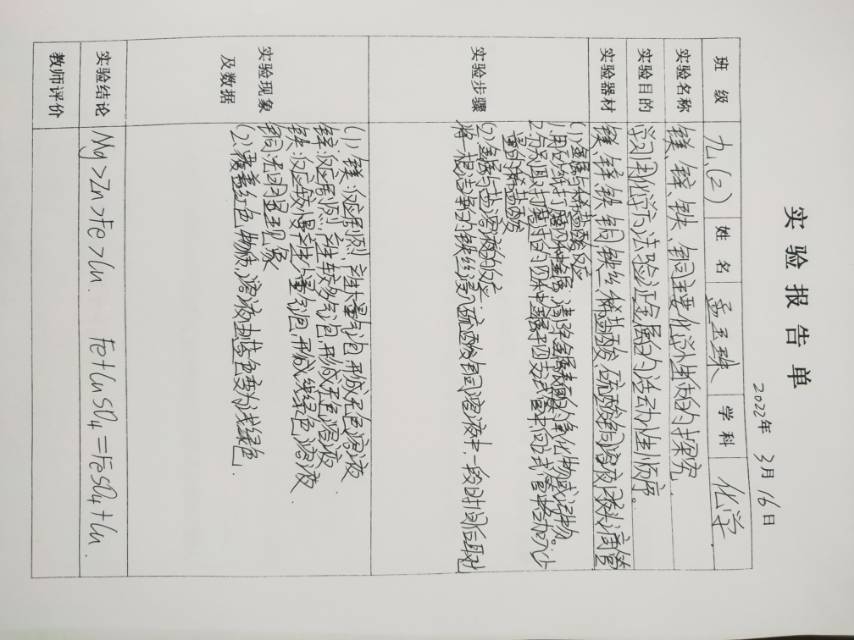 实验报告单
2022年 3月 16日
班级 九.(2) 姓名 孟玉珠 学科 化学
实验名称 镁、锌、铁、铜主要化学性质的探究.
实验目的 学习用化学方法验证金属的活动性顺序。
实验器材 镁 锌 铁 铜 铁丝 稀盐酸、硫酸铜溶液 胶头滴管
实验步骤
(1)金属与稀盐酸反应
1.用砂纸打磨四种金属,清除金属表面的氧化物或污物。
量的稀盐酸
(2)金属与盐溶液的反应.
将一根洁净的铁丝浸入硫酸铜溶液中一段时间后取出
实验现象及数据
(1)镁:反应剧烈,产生大量气泡,形成无色溶液
锌:反应剧烈,产生较多气泡,形成无色溶液
铁:反应较慢,产生少量气泡,形成浅绿色溶液.
铜:无明显现象
(2)覆着红色物质,溶液由蓝色变为浅绿色.
实验结论 Mg>Zn>Fe>Cu. Fe+CuSO4=FeSO4+Cu.
教师评价